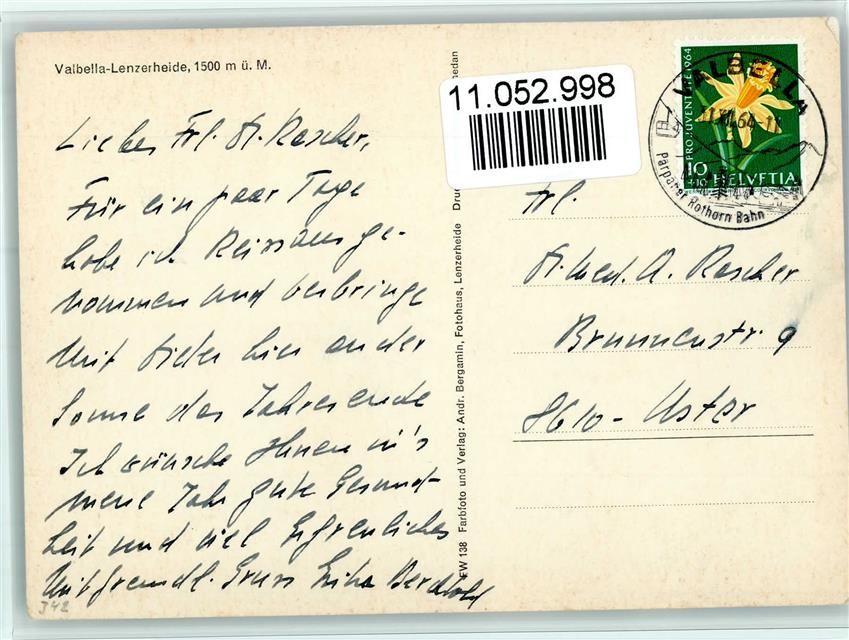 Valbella-Lenzerheide, 1500 m ü. M.
Liebes Frl. Dr. Rascher,
Für ein paar Tage
habe ich Reissaus ge-
nommen und verbringe
mit hier an der
Sonne das Jahresende
Ich wünsche Ihnen in's
neue Jahr gute Gesund-
heit und viel Erfreuliches
Mit freundl. Gruss Erika Berchtold
342
FW 138 Farbfoto und Verlag: Andr. Bergamin, Fotohaus, Lenzerheide Druc
edan
11.052.998
PRO JUVENTUTE 1964
10
+10
HELVETIA
VALBELLA
Parpaner Rothorn Bahn
Frl.
Dr. med. A. Rascher
Brunnenstr. 9
8610 - Uster